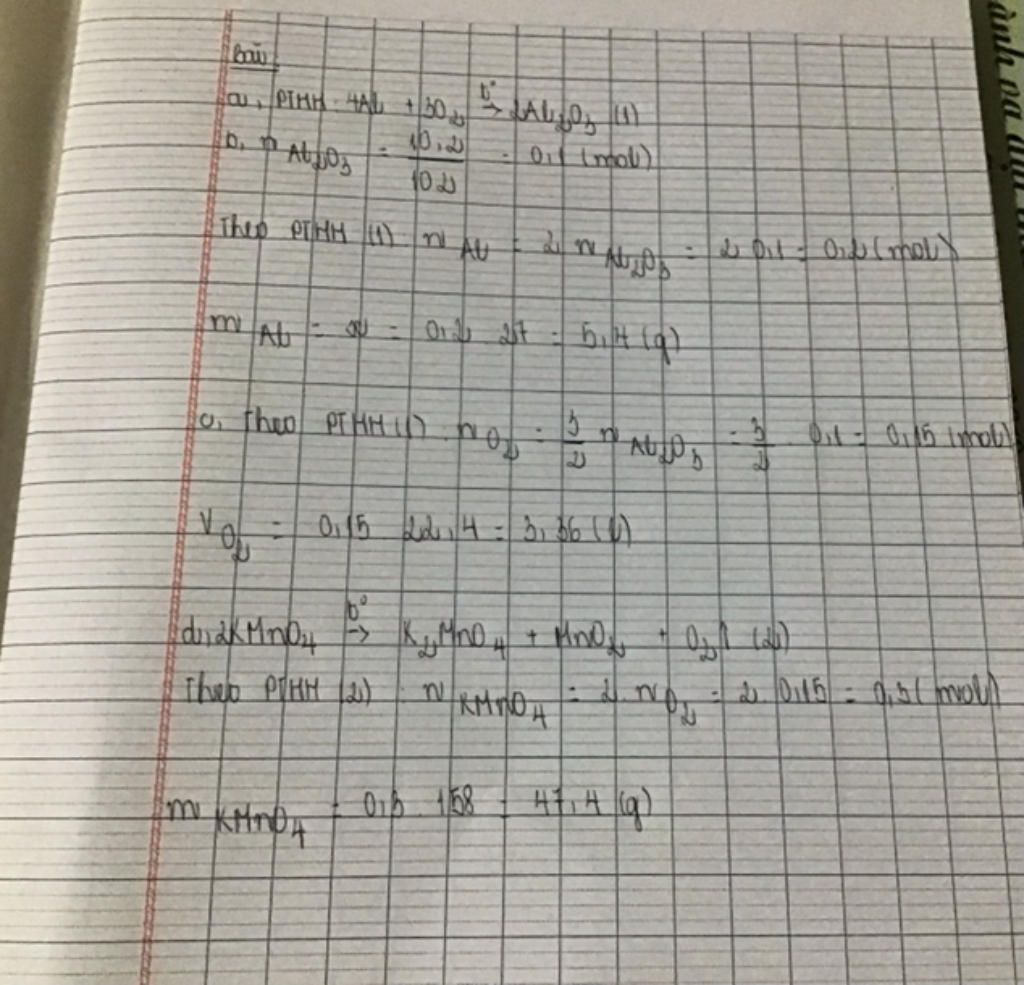 Bài
a, PTHH: 4Al + 3O₂ t°→ 2Al₂O₃ (1)
b, n Al₂O₃ = 10,2/102 = 0,1 (mol)
Theo PTHH (1) n Al = 2. n Al₂O₃ = 2. 0,1 = 0,2 (mol)
m Al = a = 0,2. 27 = 5,4 (g)
c, Theo PTHH (1). n O₂ = 3/2 n Al₂O₃ = 3/2. 0,1 = 0,15 (mol)
V O₂ = 0,15. 22,4 = 3,36 (l)
d, 2KMnO₄ t°→ K₂MnO₄ + MnO₂ + O₂↑ (2)
Theo PTHH (2): n KMnO₄ = 2. n O₂ = 2. 0,15 = 0,3 (mol)
m KMnO₄ = 0,3. 158 = 47,4 (g)